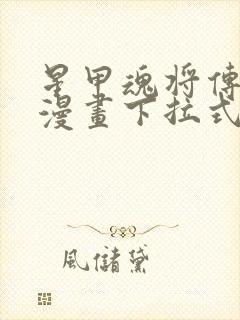 星甲魂将傳
漫畫下拉式
風儲黛